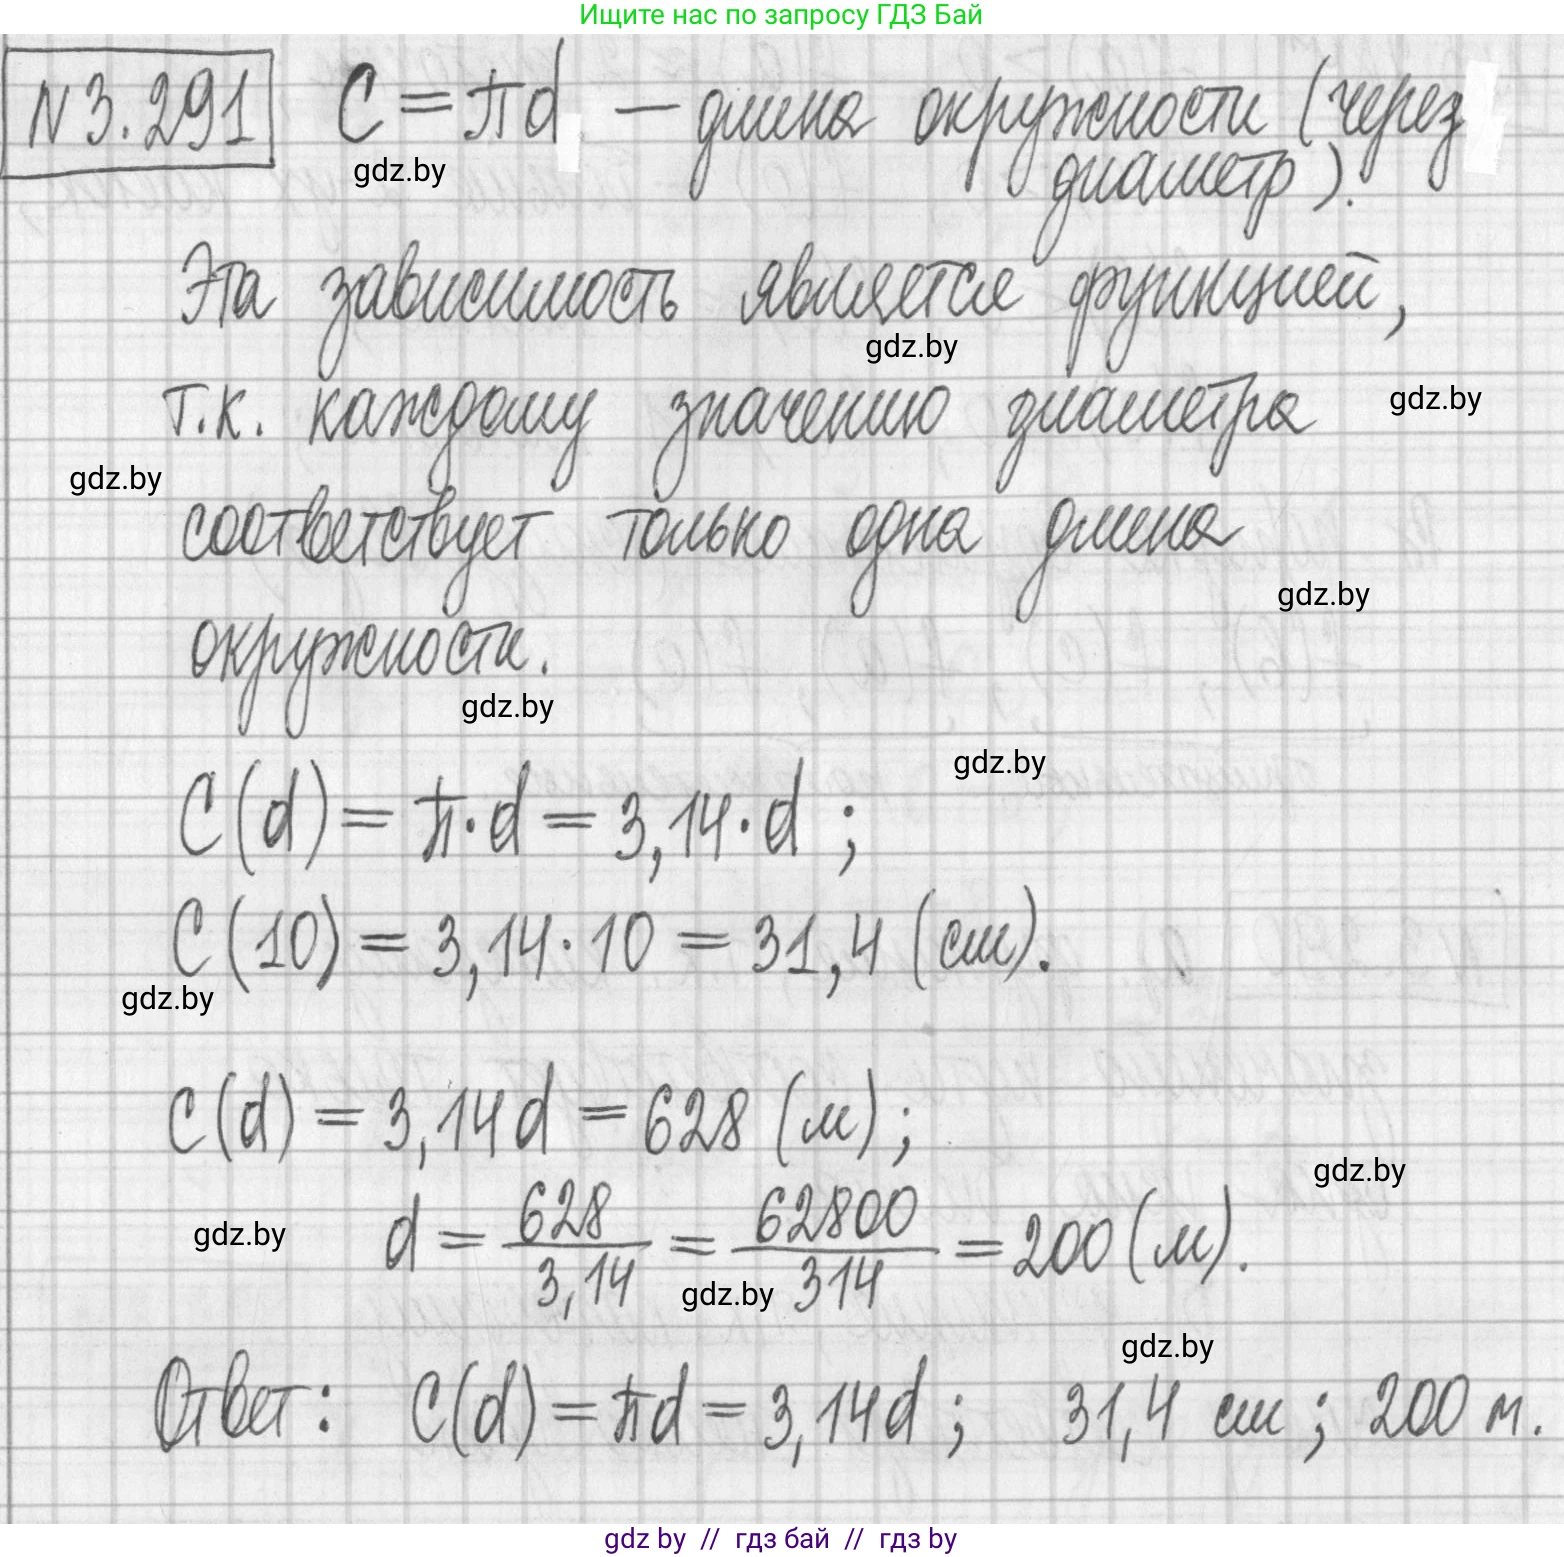 Ищите нас по запросу ГДЗ Бай
N 3.291 C = πd — длина окружности (через
gdz.by
диаметр).
Эта зависимость является функцией,
gdz.by
т.к. каждому значению диаметра
gdz.by
gdz.by
соответствует только одна длина
gdz.by
окружности.
gdz.by
gdz.by
C(d) = π·d = 3,14·d ;
C(10) = 3,14·10 = 31,4 (см).
gdz.by
C(d) = 3,14d = 628 (м) ;
gdz.by
gdz.by
d = 628/3,14 = 62800/314 = 200 (м).
gdz.by
gdz.by
Ответ: C(d) = πd = 3,14d ; 31,4 см ; 200 м.
gdz by // гдз бай // гдз by